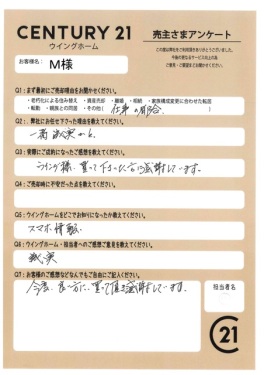 CENTURY 21
ウイングホーム
売主さまアンケート
この度は弊社をご利用頂きありがとうございました。
今後の更なるサービス向上の為
ご意見・ご要望などお聞かせください。
お客様名: M様
Q1:まず最初にご売却理由をお聞かせください。
・老朽化による住み替え ・資産売却 ・離婚 ・相続 ・家族構成変更に合わせた転居
・転勤 ・親族との同居 ・その他( 仕事の都合 )
Q2: 弊社にお任せ下さった理由をお聞かせください。
一番誠実だから
Q3:実際にご成約になったご感想を教えてください。
ウイング様、買って下さった方に感謝しています。
Q4:ご売却時に不安だった点を教えてください。
Q5:ウイングホームをどこでお知りになったか教えてください。
スマホ情報
Q6:ウイングホーム・担当者へのご感想ご意見を教えてください。
誠実
Q7:お客様のご感想などなんでもご自由にご記入ください。
今回、良い方に、買って頂き感謝しています。
担当者名
C21